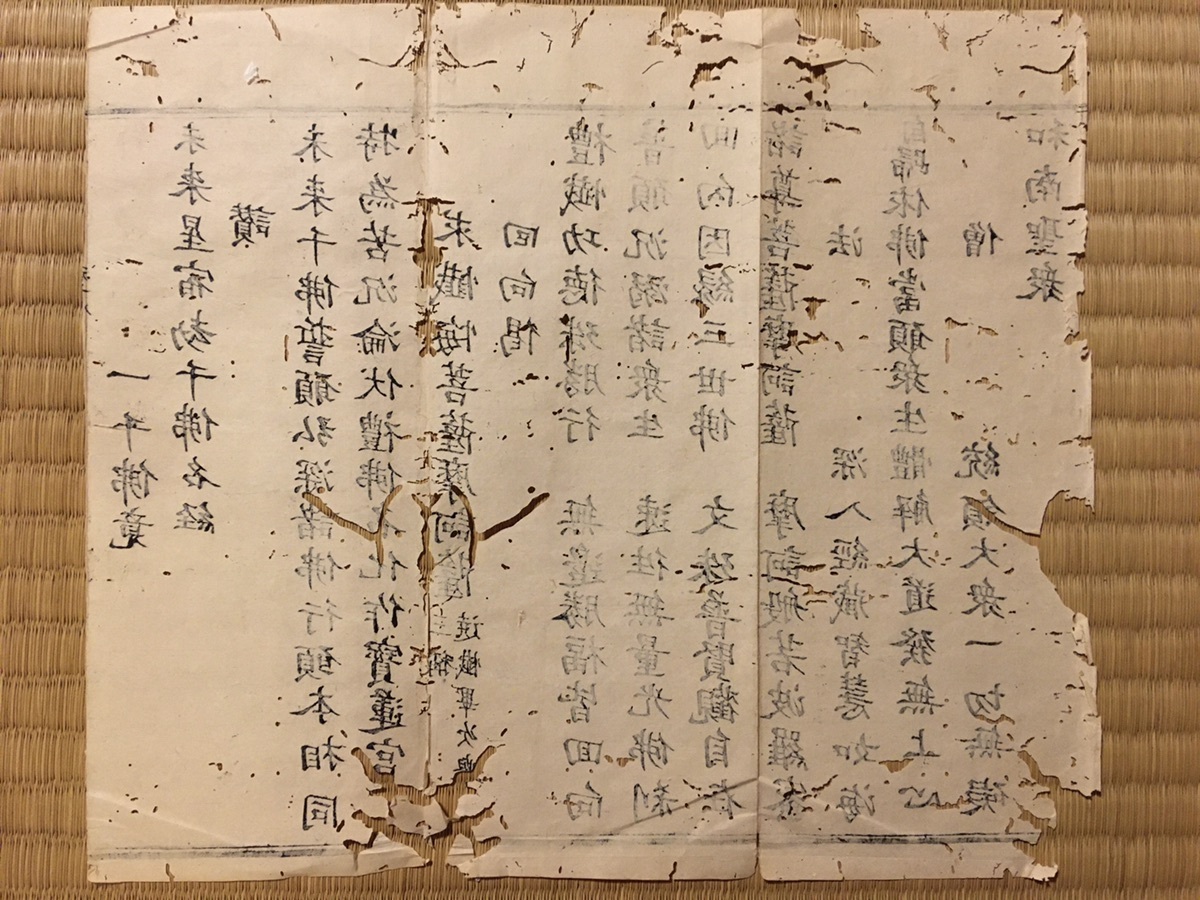 一千佛竟
未来星宿劫千佛名経
讃
未来千佛誓願弘深諸佛行願本相同
特為苦沉淪伏禮佛名化作寳蓮宮
求懺悔菩薩摩訶薩 三稱
懺畢次
回向偈
禮懺功德殊勝行 無邉勝福皆回向
普願沉溺諸衆生 速往無量光佛刹
回向因縁三世佛 文殊普賢觀自在
諸尊菩薩摩訶薩 摩訶般若波羅蜜
自歸依佛當願衆生體解大道發無上心
法 深入經藏智慧如海
僧 統領大衆一切無礙
和南聖衆